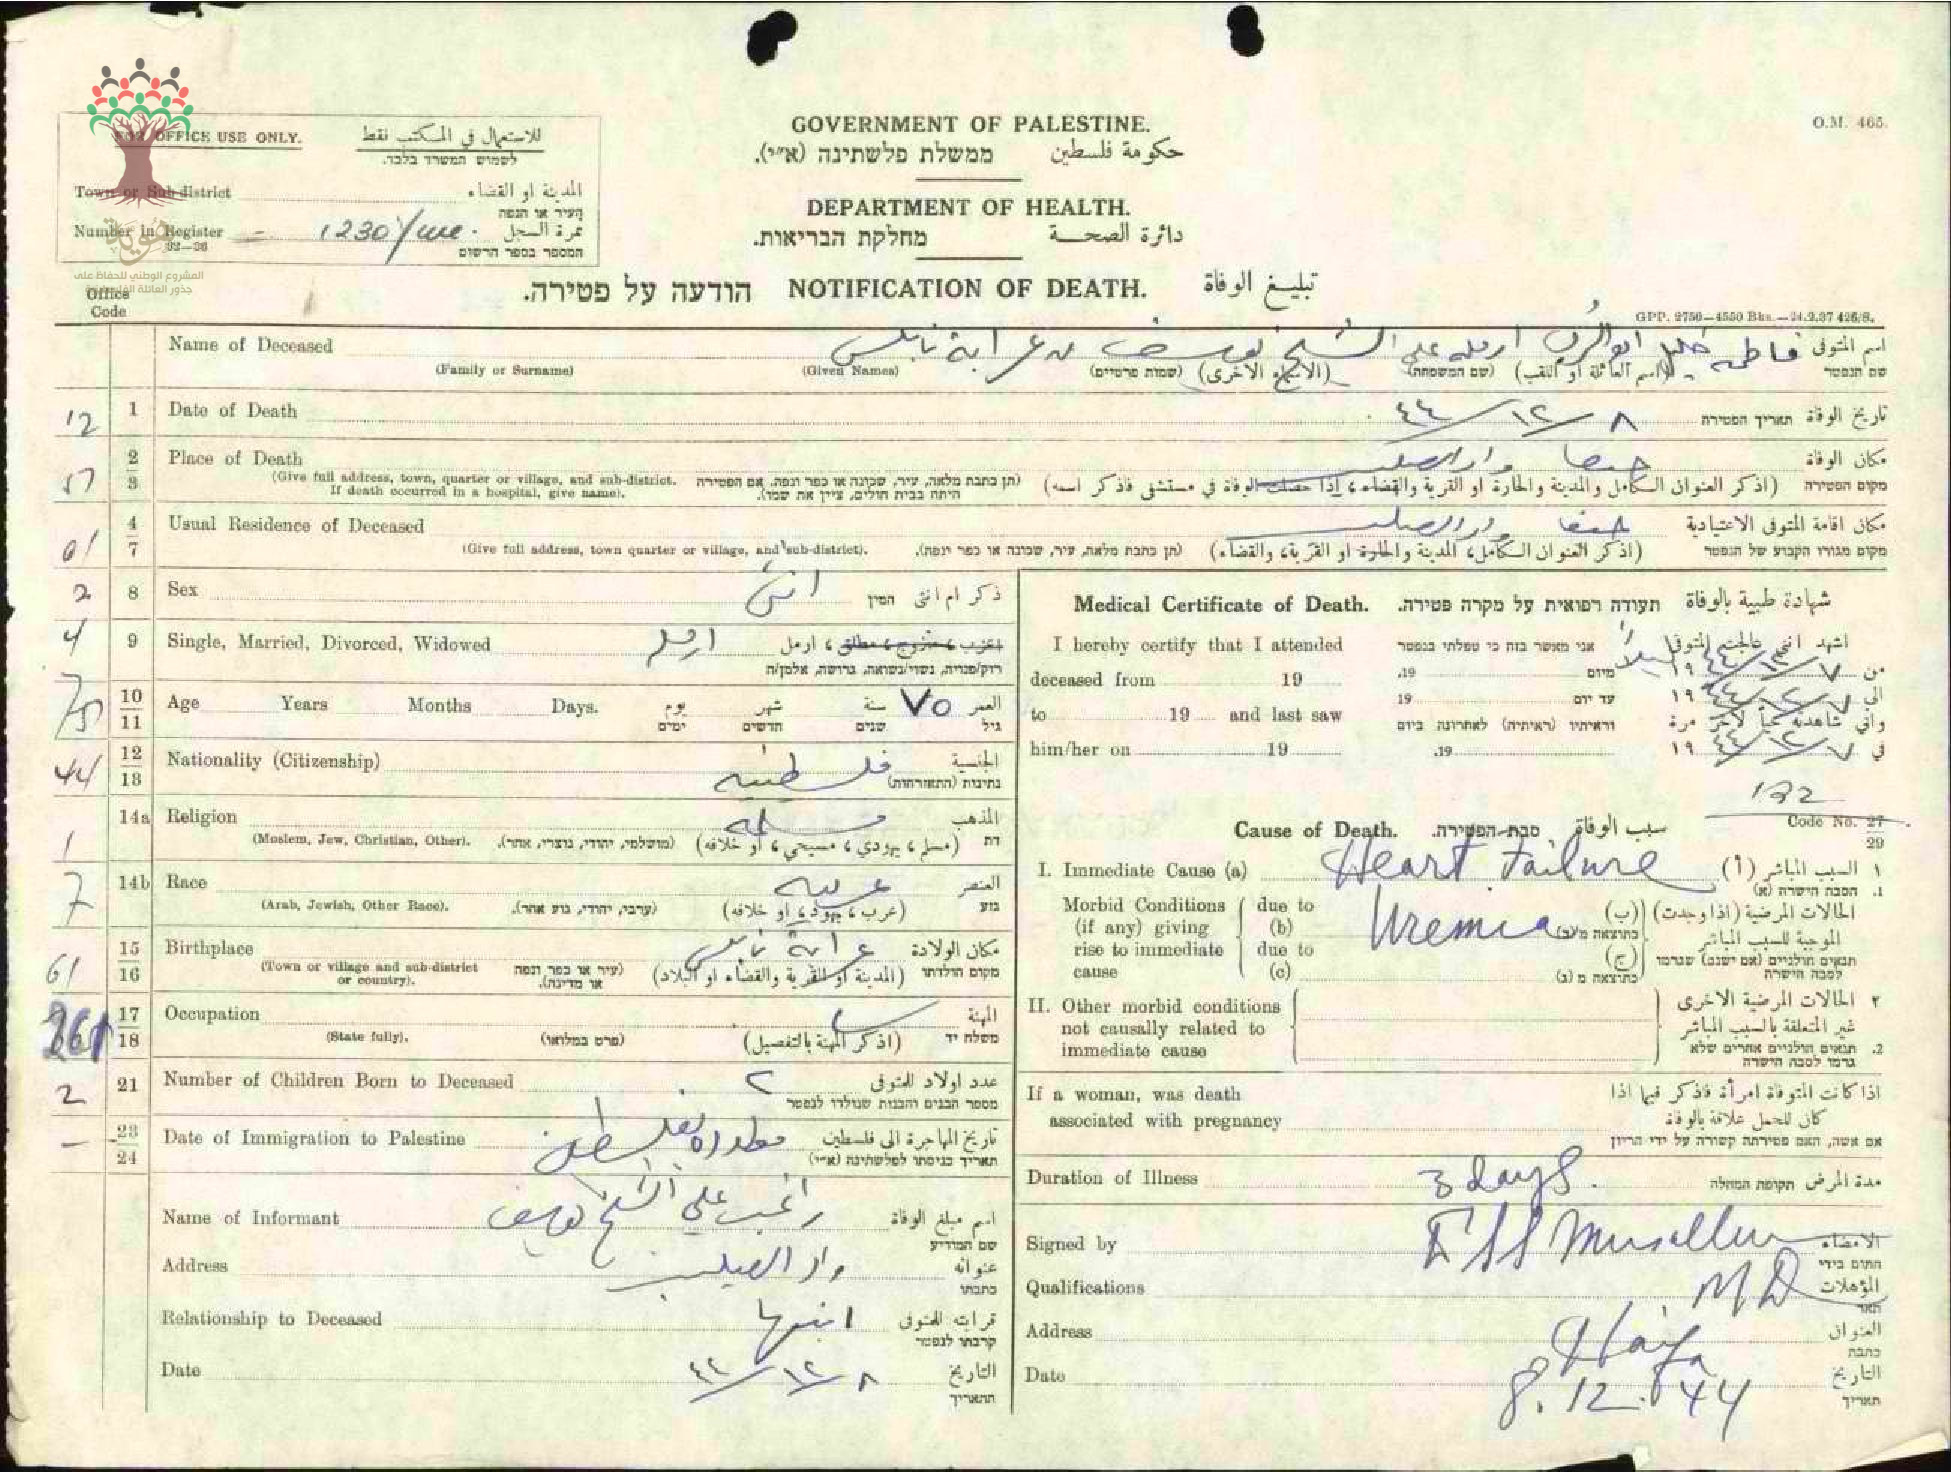 O.M. 465.
FOR OFFICE USE ONLY. للاستعمال في المكتب فقط
לשמוש המשרד בלבד.
Town or Sub-district المدينة او القضاء
העיר או הנפה
Number in Register 1230 نمرة السجل
92—26
המספר בספר הרשום
المشروع الوطني للحفاظ على
جذور العائلة الفلسطينية
GOVERNMENT OF PALESTINE.
ממשלת פלשתינה (א״י). حكومة فلسطين
DEPARTMENT OF HEALTH.
מחלקת הבריאות. دائرة الصحة
הודעה על פטירה. NOTIFICATION OF DEATH. تبليغ الوفاة
Office
Code
GPP. 2750—4550 Bks.—24.2.37 426/S.
Name of Deceased فاطمه خليل ارمله علي الشيخ يوسف من عرابة نابلس اسم المتوفى
(Family or Surname) (Given Names) (الاسماء الاخرى) (שמות פרטיים) (اسم العائلة او اللقب) (שם המשפחה) שם הנפטר
12 1 Date of Death ٨/١٢/٤٤ תאריך הפטירה تاريخ الوفاة
57 2 3 Place of Death حيفا واد الصليب مكان الوفاة
(Give full address, town, quarter or village, and sub-district. If death occurred in a hospital, give name).
(תן כתבת מלאה, עיר, שכונה או כפר ונפה. אם הפטירה היתה בבית חולים, ציין את שמו).
(اذكر العنوان الكامل والمدينة والحارة او القرية والقضاء، اذا حصلت الوفاة في مستشفى فاذكر اسمه) מקום הפטירה
61 4 7 Usual Residence of Deceased حيفا واد الصليب مكان اقامة المتوفى الاعتيادية
(Give full address, town quarter or village, and sub-district). (תן כתבת מלאה, עיר, שכונה או כפר ונפה). (اذكر العنوان الكامل، المدينة والحارة او القرية، والقضاء) מקום מגורו הקבוע של הנפטר
2 8 Sex انثى המין ذكر ام انثى
4 9 Single, Married, Divorced, Widowed ارمله اعزب، متزوج، مطلق، ارمل
רווק/פנויה, נשוי/נשואה, גרושה, אלמן/ה
75 10 11 Age Years Months Days. يوم شهر سنة ٧٥ العمر
ימים חדשים שנים גיל
44 12 13 Nationality (Citizenship) فلسطينيه الجنسية
נתינות (התאזרחות)
1 14a Religion مسلمه المذهب
(Moslem, Jew, Christian, Other). (מושלמי, יהודי, נוצרי, אחר). (مسلم، يهودي، مسيحي، او خلافه) דת
7 14b Race عربيه العنصر
(Arab, Jewish, Other Race). (ערבי, יהודי, גזע אחר). (عرب، يهود، او خلافه) גזע
61 15 16 Birthplace عرابة نابلس مكان الولادة
(Town or village and sub-district or country). (עיר או כפר ונפה או מדינה). (المدينة او القرية والقضاء او البلاد) מקום הולדתו
17 18 Occupation المهنة
(State fully). (פרט במלואו) (اذكر المهنة بالتفصيل) משלח יד
2 21 Number of Children Born to Deceased ٢ عدد اولاد للمتوفى
מספר הבנים והבנות שנולדו לנפטר
— 23 24 Date of Immigration to Palestine تاريخ المهاجرة الى فلسطين
תאריך כניסתו לפלשתינה (א״י)
Name of Informant راغب علي الشيخ يوسف اسم مبلغ الوفاة
שם המודיע
Address واد الصليب عنوانه
כתבתו
Relationship to Deceased ابنها قرابته للمتوفى
קרבתו לנפטר
Date ٨/١٢/٤٤ التاريخ
התאריך
Medical Certificate of Death. תעודה רפואית על מקרה פטירה. شهادة طبية بالوفاة
I hereby certify that I attended אני מאשר בזה כי טפלתי בנפטר اشهد انني عالجت المتوفى
deceased from 19 19. מיום من ٧/١٢/٤٤ ١٩
to 19 and last saw 19 עד יום الى ٧/١٢/٤٤ ١٩
וראיתיו (ראיתיה) לאחרונה ביום واني شاهدته حياً لآخر مرة
him/her on 19 19. في ٧/١٢/٤٤ ١٩
132
Code No. 27 29
Cause of Death. סבת הפטירה. سبب الوفاة
I. Immediate Cause (a) Heart Failure (أ) السبب المباشر ١
הסבה הישרה (א) 1.
Morbid Conditions (if any) giving rise to immediate cause
due to (b) Uremia כתוצאה מ/(ב) (ب)
due to (c) כתוצאה מ (ג) (ج)
الحالات المرضية (اذا وجدت) الموجبة للسبب المباشر
תנאים חולניים (אם ישנם) שגרמו לסבה הישרה
II. Other morbid conditions not causally related to immediate cause
٢ الحالات المرضية الاخرى غير المتعلقة بالسبب المباشر
2. תנאים חולניים אחרים שלא גרמו לסבה הישרה
If a woman, was death associated with pregnancy
اذا كانت المتوفاة امرأة فاذكر فيما اذا كان للحمل علاقة بالوفاة
אם אשה, האם פטירתה קשורה על ידי הריון
Duration of Illness 3 days. תקופת המחלה مدة المرض
Signed by الامضاء
חתום בידי
Qualifications MD المؤهلات
תאר
Address Haifa العنوان
כתבת
Date 8.12.44 التاريخ
תאריך